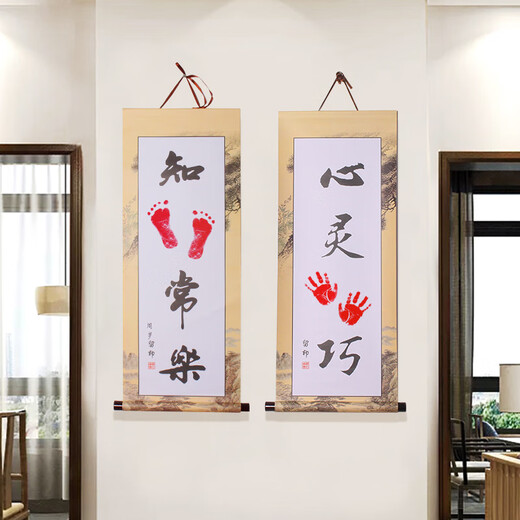 知常樂
周岁留印
心灵巧
留印